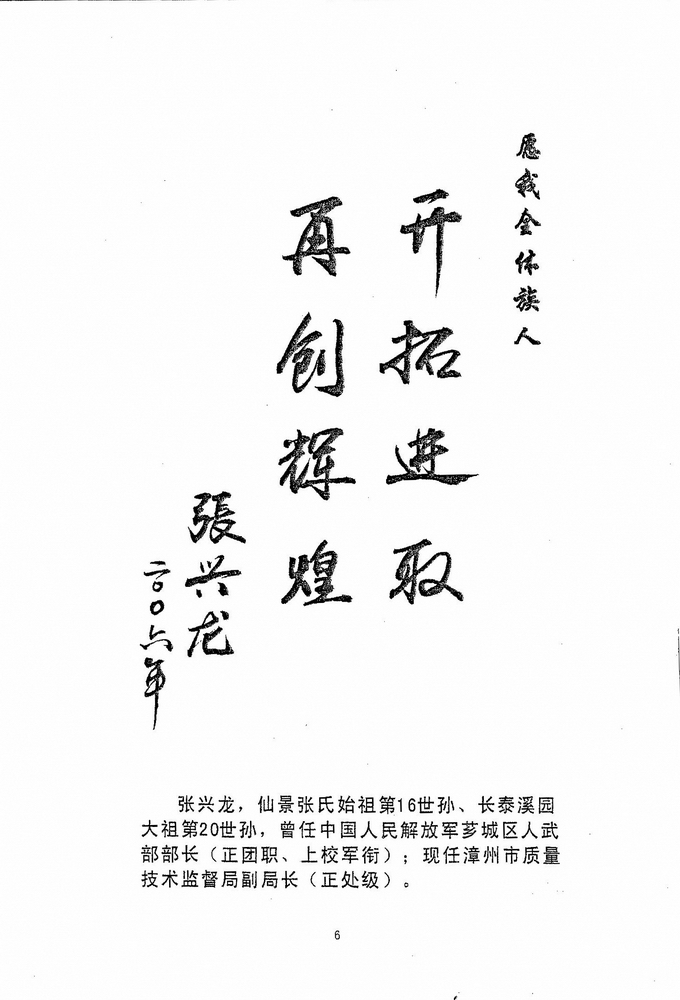 愿我全体族人
开拓进取
再创辉煌
張兴龙
二00六年
张兴龙，仙景张氏始祖第16世孙、长泰溪园
大祖第20世孙，曾任中国人民解放军芗城区人武
部部长（正团职、上校军衔）；现任漳州市质量
技术监督局副局长（正处级）。
6